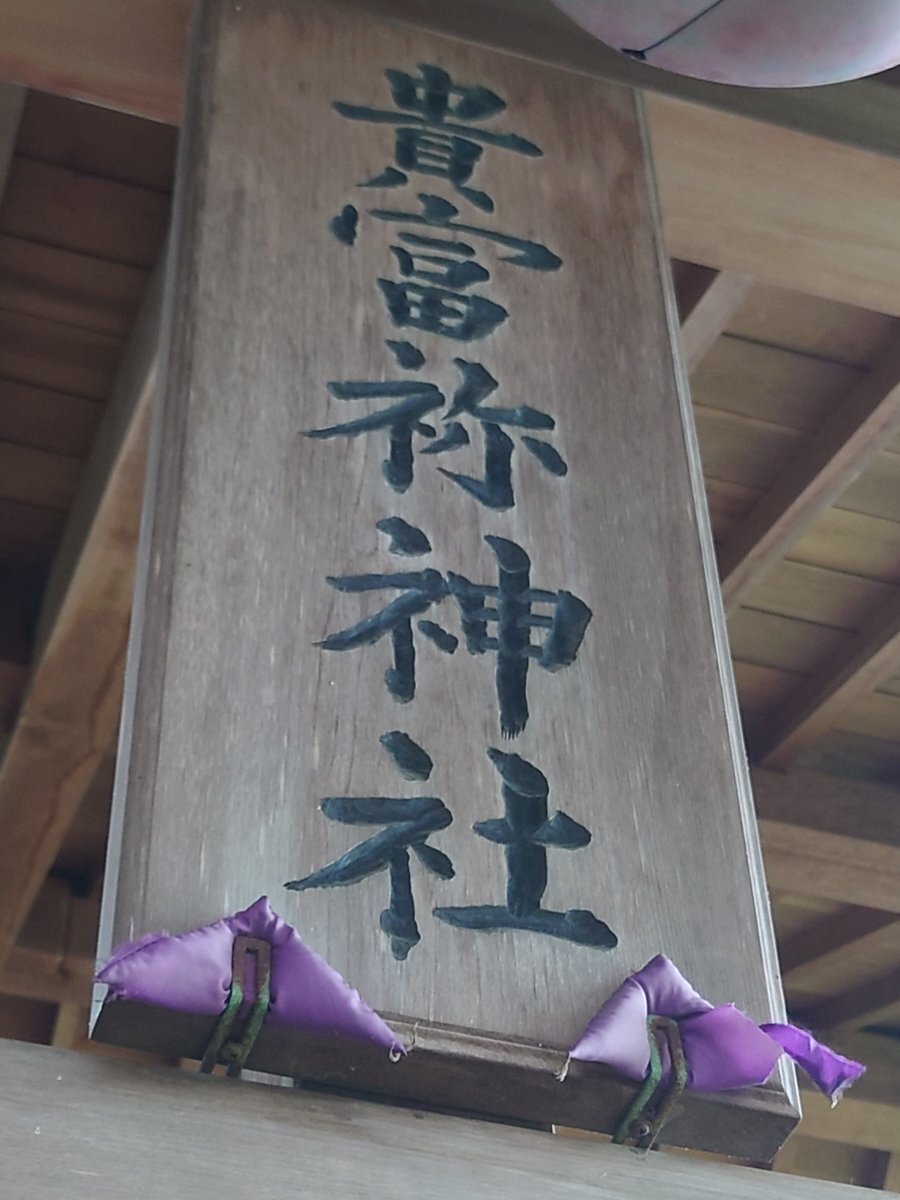 貴富祢神社